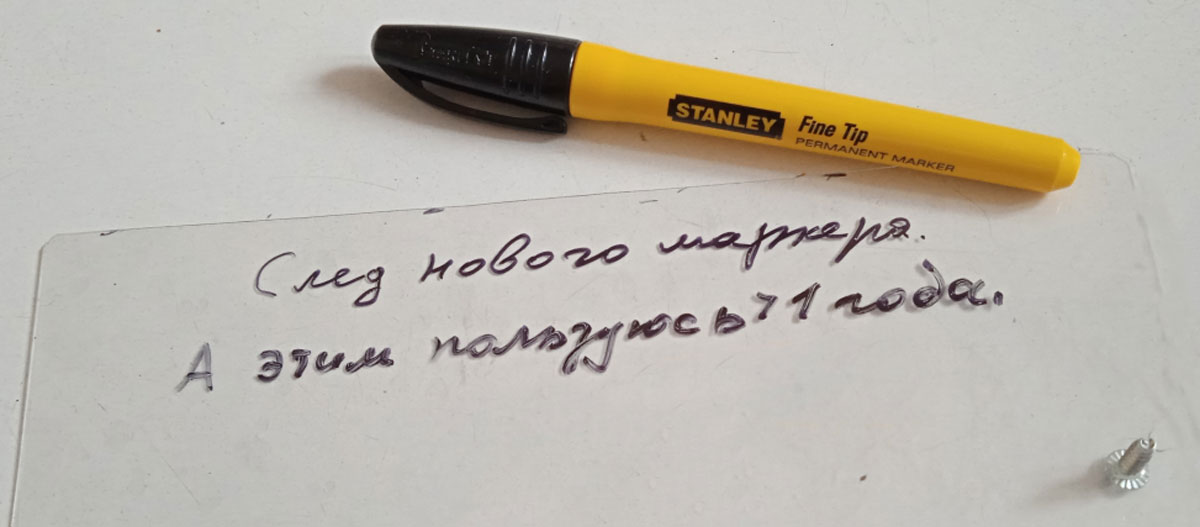 STANLEY
Fine Tip
PERMANENT MARKER
След нового маркера.
А этим пользуюсь >1 года.